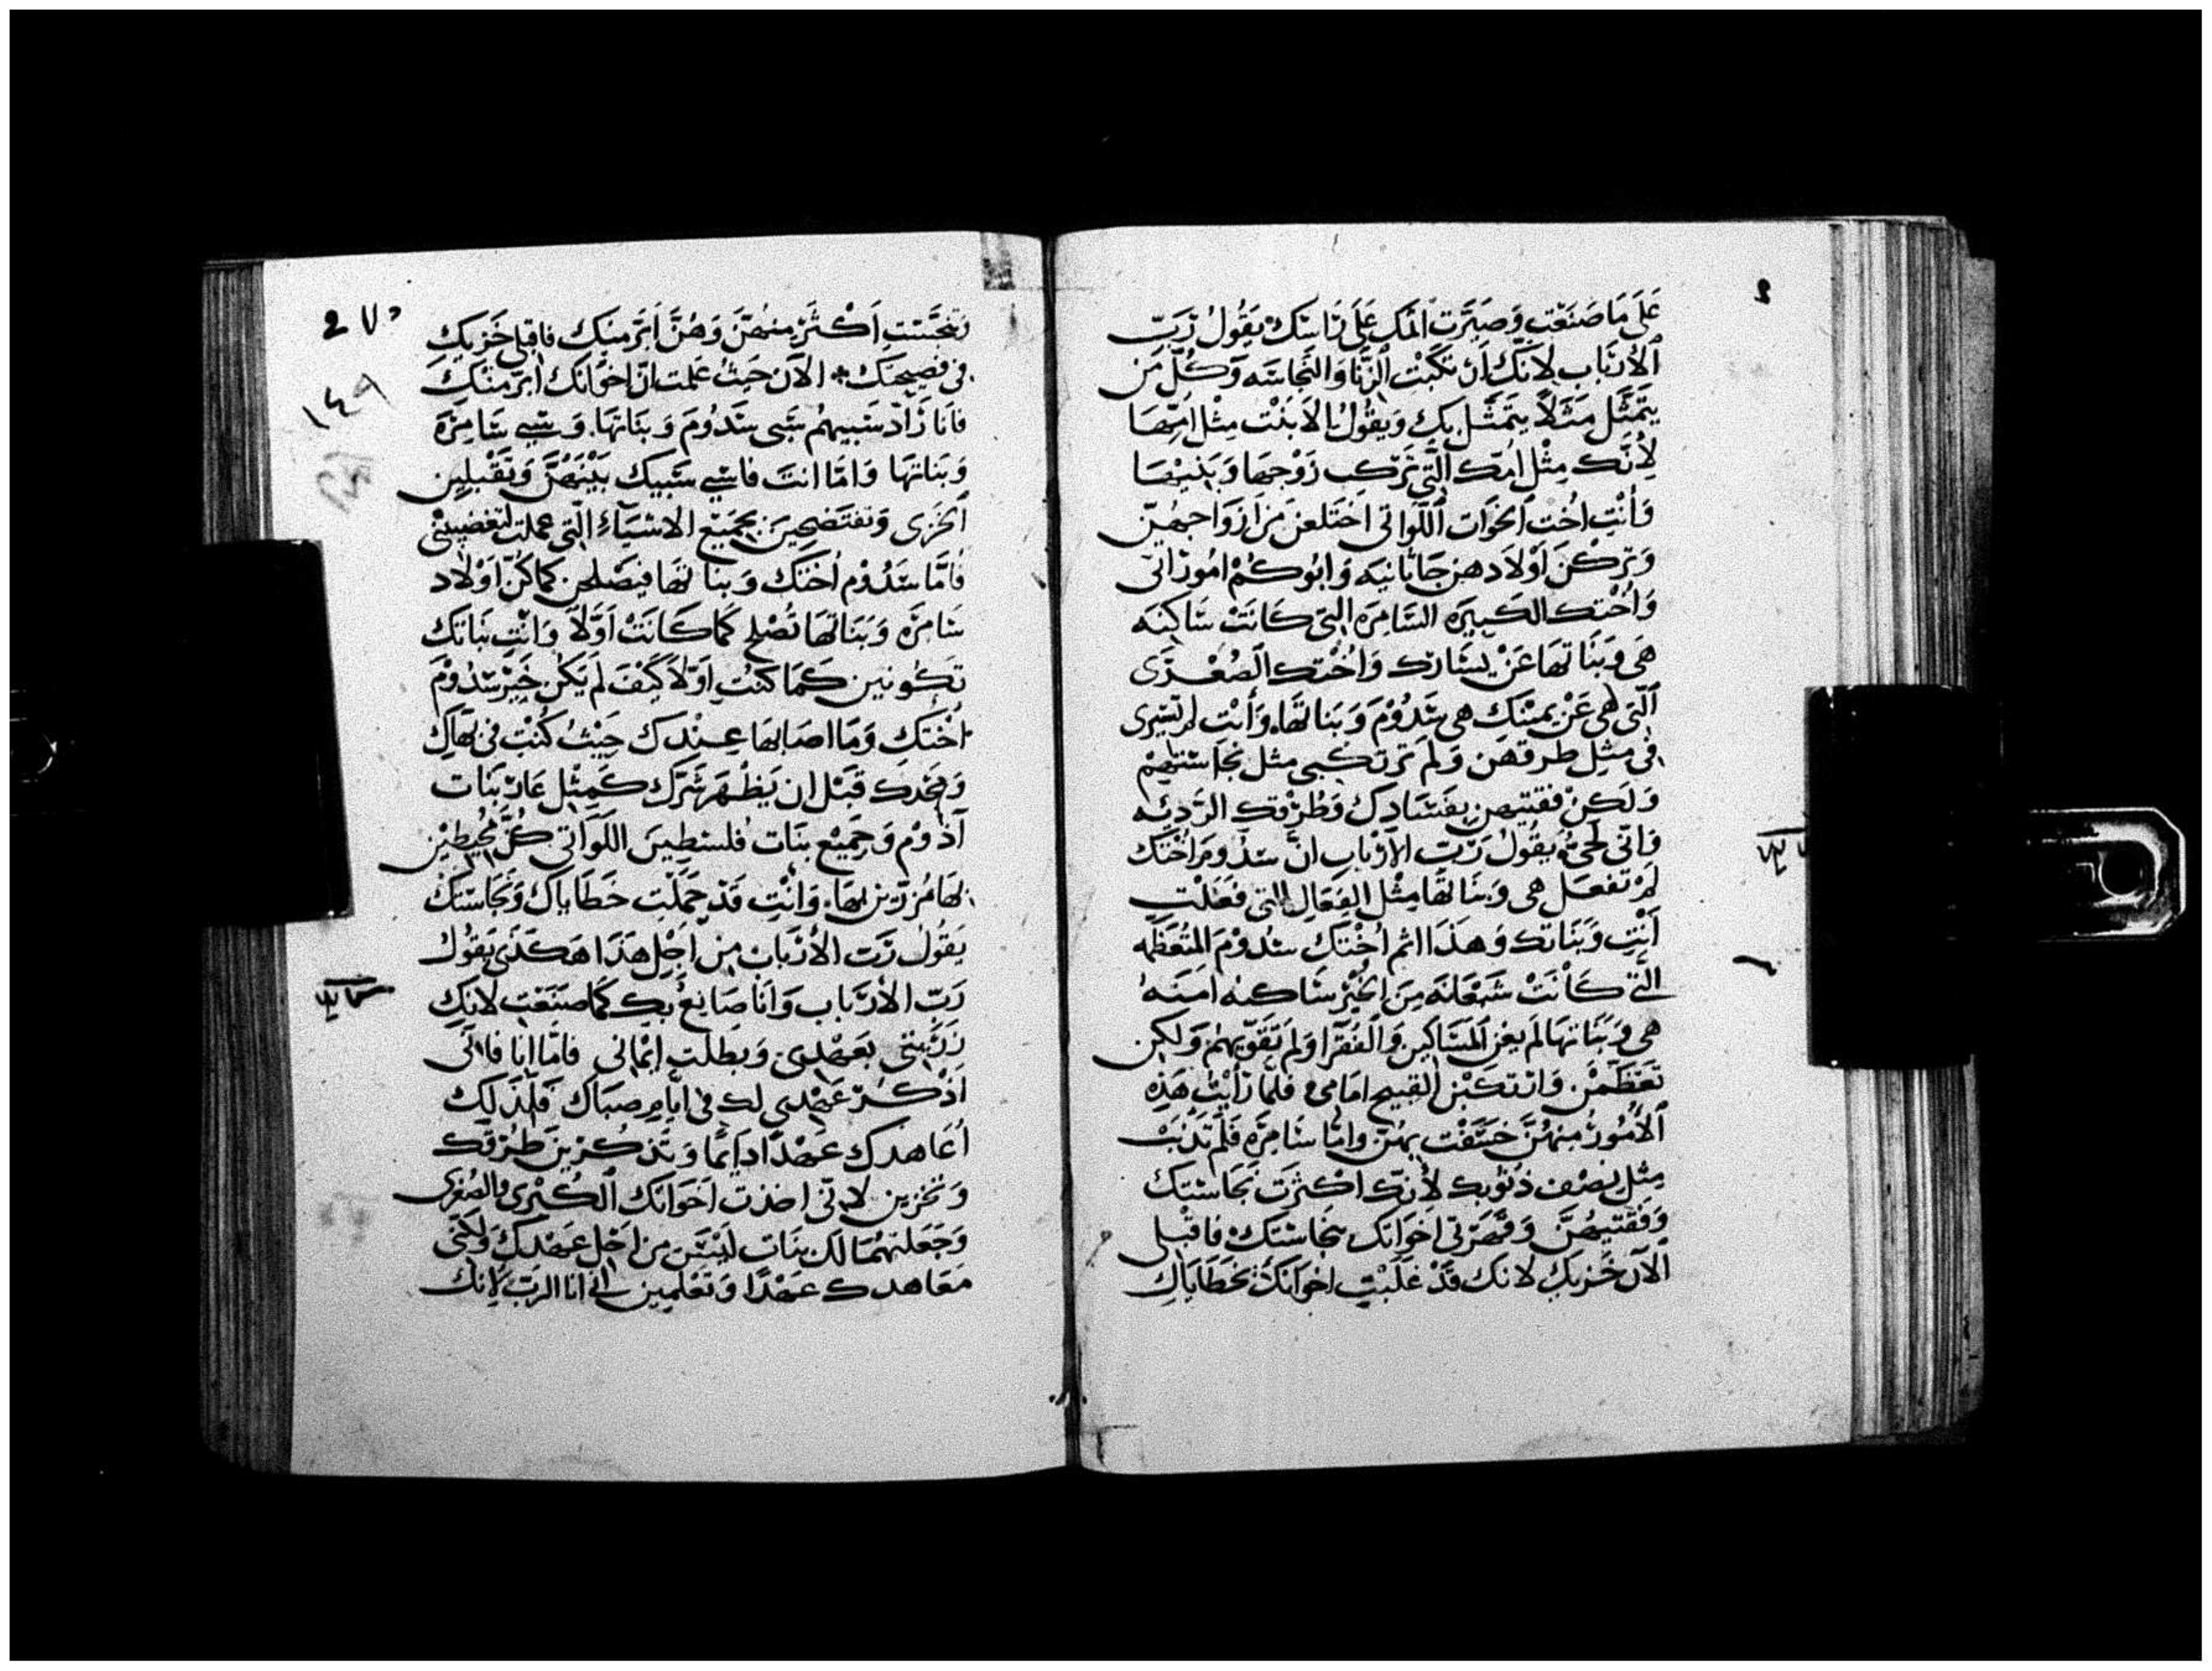 عَلَى مَا صَنَعْتِ وَصَيَّرت المك عَلَى رَاسَك يَقُولُ رَبّ
الأرْبَاب لانّك ان تكبت الزّنَا وَالنّجَاسَه وَكُلّ مَن
يتَمَثَّل مَثَلاً يتَمَثَّل بِك وَيقُولُ الابنت مِثْل امّهَا
لأنّك مِثْل امّك التّي تركت زَوْجهَا وَبَنيهَا
وَأنْتِ اخْت اخَوَات اللّوَاتى اختَلعن مَن ازوَاجهنّ
وَتركْنَ أوْلادهن جَابانيَه وَابُوكُمْ امُورَانى
وَأخْتك الكَبيرَه السَّامِرَه التى كَانَتْ سَاكِنَه
هى وَبَنَاتهَا عَنْ يسَارك وَاخْتك الصُغْرَى
التّى هى عَنْ يمينك هى سَدُوْمَ وَبَنَاتهَا. وَأنْتِ لم تسيرى
فى مثِل طرقهن وَلَم ترتكبى مثل نجاسَتهم
وَلَكِن فقتيهن بفَسَادك وَطُرْقك الرّديئه
فانى لحىّ يقُولُ رَبّ الأرْبَاب انّ سَدُومَ اخْتك
لمْ تَفعَل هى وَبَنَاتهَا مِثْل الفِعَال التى فَعَلتِ
أنْتِ وَبَنَاتك وَهَذَا اثم أخْتك سَدُوْمَ المتُعَظّمه
التى كَانَتْ شَبْعَانَه مِنَ الخُبْز سَاكنه امَنه
هى وَبَنَاتهَا لَم يعن المَسَاكين وَالفُقَرا وَلَم تَقوّيهُم وَلكِن
تَعَظّمْنَ وَارتَكَبْن القبيح امَامى فلمّا رَأيْت هَذِه
الأمُورُ مِنهُنّ خسَفْت بهنّ وامّا سَامِرَه فَلَم تذنُبْ
مثِل نِصْف ذنُوبك لأنّك اكثَرْتِ نجَاسَتك
وَفقتيهُنّ وَقَهَرتى اخوَاتك بنجَاسَتك فَاقبلى
الآن خزيك لانك قَدْ غَلَبْتِ اخوَاتك بخَطَايَاكِ
2 ٧٠
١٤٩
وتنجّستِ اكثَرْ مِنهُنّ وَهُنّ ابَرّ منِك فاقبلى خَزيك
فى فضيحَتك * الآن حَيثُ عَلمت انّ اخوَاتك ابرّ منك
فانَا رَادّ سَبيهم سَبى سَدُومَ وَبنَاتهَا. وَسَبى سَامِرَه
وَبَناتهَا وَامّا انتَ فاسْبى سَبيك بيْنهُنّ وَتَقْبلين
الخزى وَتفتضحين بجميع الاشيَآء التى عملت لتغضبينى
فامّا سَدُوْم اخْتك وَبنَاتهَا فيَصْلحن كما كُنّ اوْلاد
سَامرَه وَبَنَاتهَا تُصْلح كمَا كَانَتْ أوّلاً وَانْت بنَاتك
تكونين كمَا كنْتِ اوّلاً كَيْفَ لَم يكن خَبر سَدُوْمَ
اخْتك وَمَا اصَابهَا عِنْدك حَيْثُ كُنْتِ فى بَهَاك
وَمجْدك قَبْل ان يَظْهَر شَرّك كمِثْل عَار بَنَات
آدُوْم وَجَميْع بنَات فلسْطينَ اللوَاتى كنّ محيطين
بهَا مُزرّين بهَا. وَانْتِ قَدْ حَمَلْتِ خطَاياك وَنجَاسَتك
يقُولُ رَبّ الأرْبَاب من اجْل هَذَا هَكَذَى يقُول
رَبّ الأرْبَاب وَانَا صَانعٌ بك كمَا صنَعْت لانك
بعَهْدى وَبطلت ايْمَانى فامّا انَا فانّى
اذْكُر عَهْدى لك فى ايّام صبَاك فلذَلِك
أعَاهدك عَهْدًا دَايمًا وَتذكُرين طُرْقك
وَتخزين لانى اخذت اخَوَاتك الكُبْرى والصُغرى
وَجَعَلتهُمَا لك بنَات ليْسَ من اجْل عَهْدك وَلكنّى
مَعَاهدك عَهْدًا وَتَعْلمين انى انا الرّبّ لانك